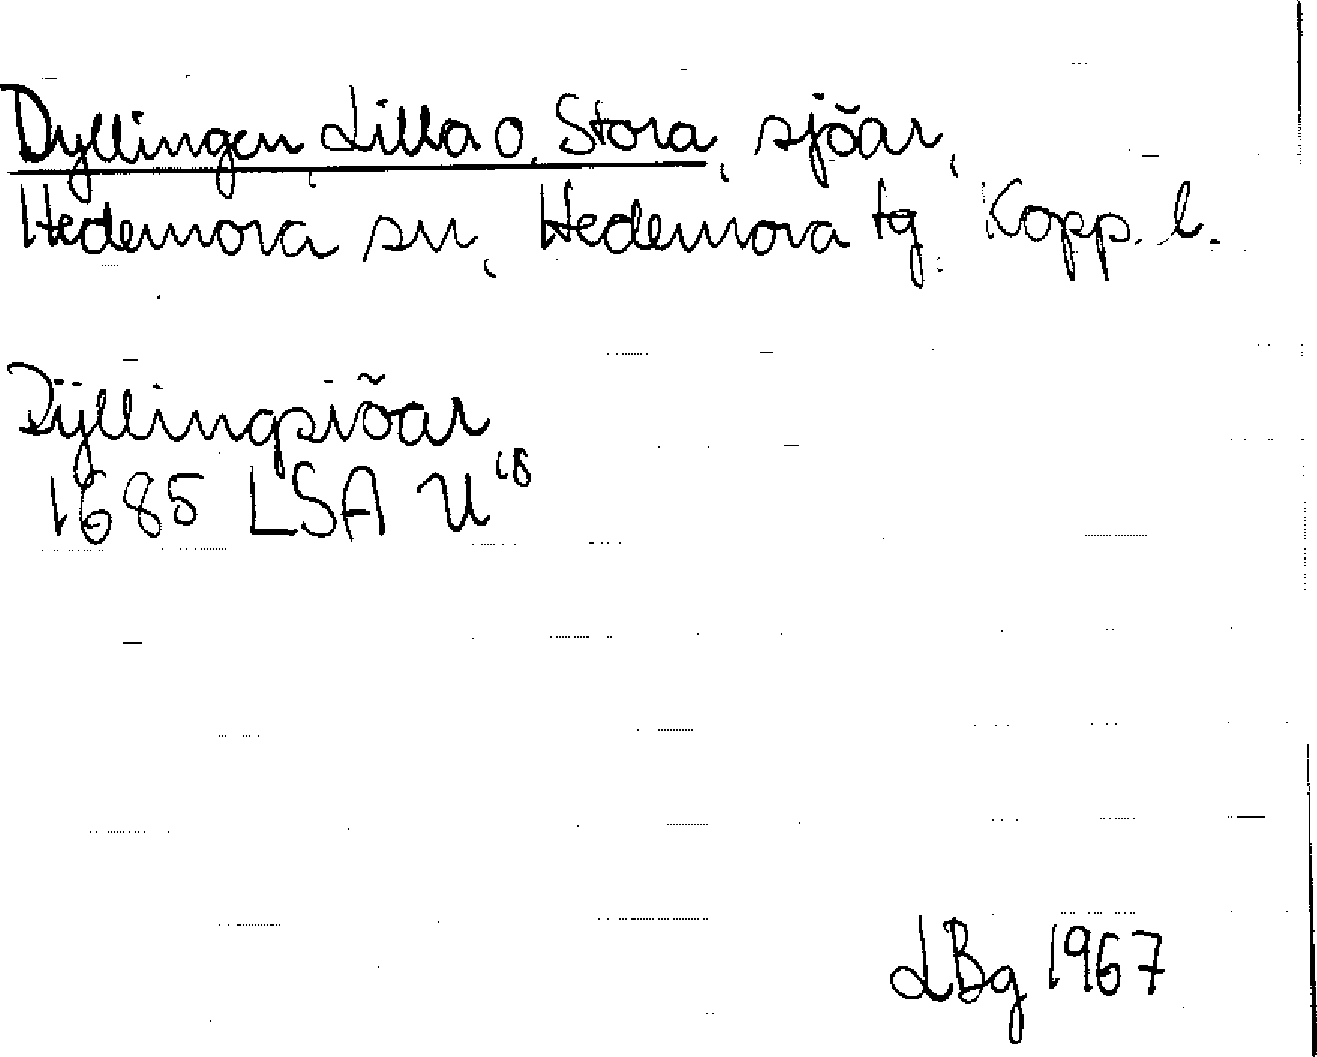 Dyllingen Lilla o. Stora, sjöar,
Hedemora sn, Hedemora tg. Kopp. l.
Dÿllingsiöar
1685 LSA U 18
LBg 1967